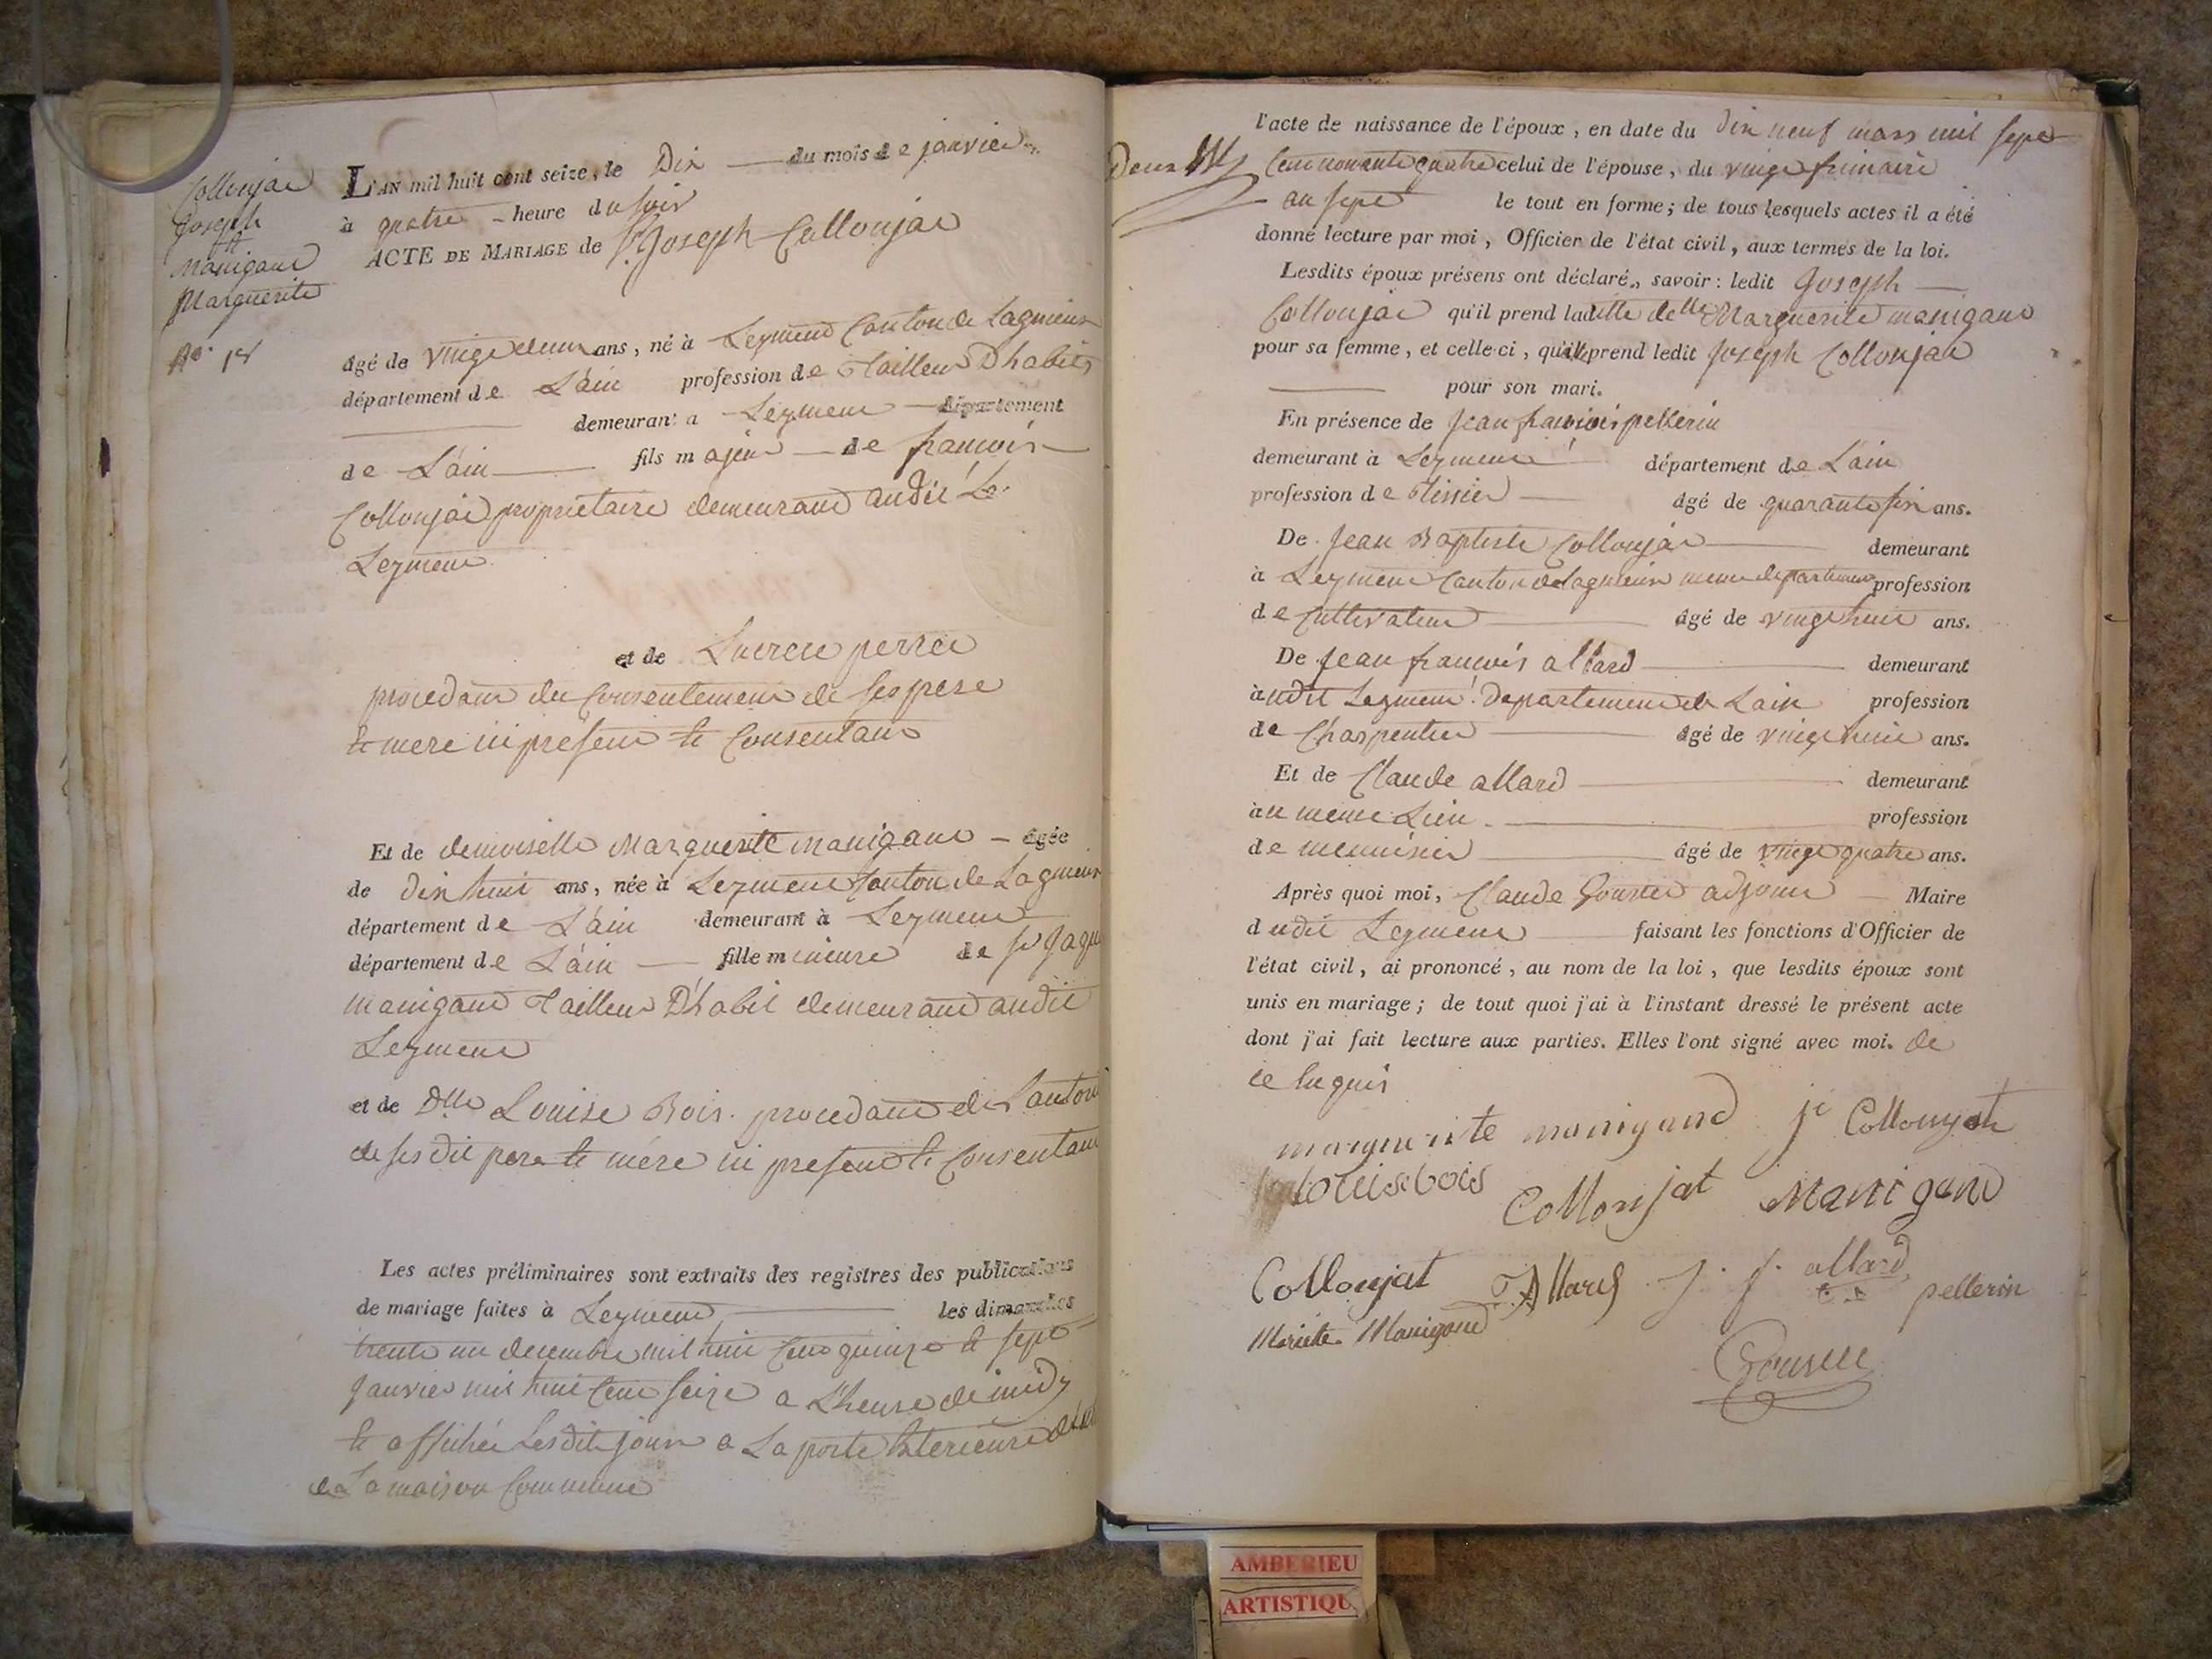 Collonjat
Joseph
et
Manigand
Marguerite
No 1er
L'AN mil huit cent seize, le Dix du mois de janvier
à quatre heure du soir
ACTE DE MARIAGE de Sr Joseph Collonjat
âgé de vingt deux ans, né à Leyment Canton de Lagnieux
département de L'ain profession de Tailleur D'habits
demeurant a Leyment département
de L'ain fils majeur de francois
Collonjat propriétaire demeurant audit Le
Leyment
et de Lucrece perret
procedant du Consentement de ses pere
et mere ici présent et Consentant
Et de demoiselle Marguerite manigand âgée
de dix huit ans, née à Leyment Canton de Lagnieux
département de L'ain demeurant à Leyment
département de L'ain fille mineure de Sr Jaqu
manigand Tailleur D'habit demeurant audit
Leyment
et de Dlle Louise Bois. procedant de L'autori
de ses dit pere et mére ici present et Consentant
Les actes préliminaires sont extraits des registres des publications
de mariage faites à Leyment les dimanches
trente un decembre mil huit Cent quinze et sept
Janvier mil huit Cent seize a L'heure de midy
et affichée Lesdit jour a La porte Exterieure
de La maison Commune
Deux
l'acte de naissance de l'époux, en date du dix neuf mars mil sept
Cent nonante quatre celui de l'épouse, du vingt frimaire
an sept le tout en forme; de tous lesquels actes il a été
donné lecture par moi, Officier de l'état civil, aux termes de la loi.
Lesdits époux présens ont déclaré, savoir: ledit Joseph
Collonjat qu'il prend ladite delle Marguerite manigand
pour sa femme, et celle-ci, qu'elle prend ledit Joseph Collonjat
pour son mari.
En présence de Jean francois pellerin
demeurant à Leyment département de L'ain
profession de Tissier âgé de quarante six ans.
De Jean Baptiste Collonjat demeurant
à Leyment Canton de Lagnieux meme departement profession
de Cultivateur âgé de vingt huit ans.
De Jean francois allard demeurant
àudit Leyment. Departement de L'ain profession
de Charpentier âgé de vingt huit ans.
Et de Claude allard demeurant
àu meme Lieu. profession
de menuisier âgé de vingt quatre ans.
Après quoi moi, Claude adjoint Maire
dudit Leyment faisant les fonctions d'Officier de
l'état civil, ai prononcé, au nom de la loi, que lesdits époux sont
unis en mariage; de tout quoi j'ai à l'instant dressé le présent acte
dont j'ai fait lecture aux parties. Elles l'ont signé avec moi. de
ce requis
marguerite manigand jc Collonjat
louise bois Collonjat Manigand
Collonjat Allard j. f. allard pellerin
Manigand
AMBERIEU
ARTISTIQU